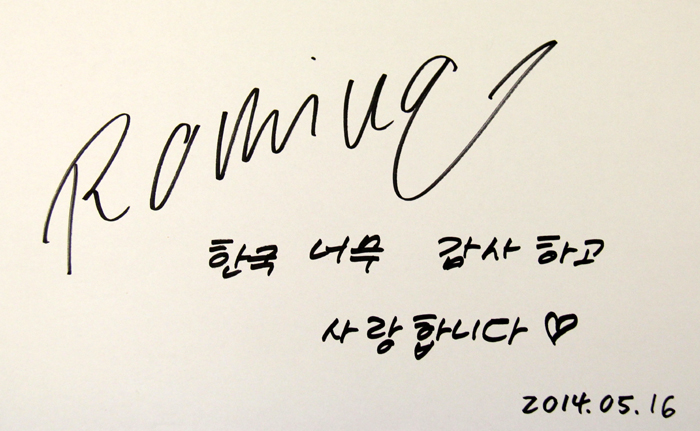 Romina
한국 너무 감사하고
사랑합니다 ♡
2014.05.16